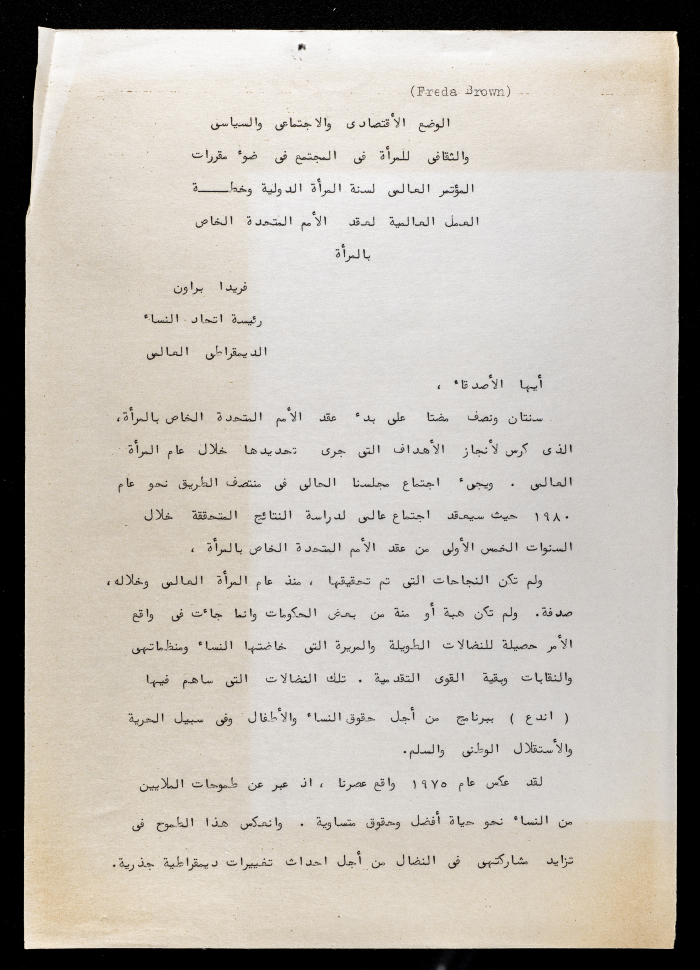 (Freda Brown)
الوضع الأقتصادى والاجتماعى والسياسى
والثقافى للمرأة فى المجتمع فى ضوء مقررات
المؤتمر العالمى لسنة المرأة الدولية وخطـــــة
العمل العالمية لعقد الأمم المتحدة الخاص
بالمرأة
فريدا براون
رئيسة اتحاد النساء
الديمقراطى العالمى
أيها الأصدقاء ،
سنتان ونصف مضتا على بدء عقد الأمم المتحدة الخاص بالمرأة،
الذى كرس لأنجاز الأهداف التى جرى تحديدها خلال عام المرأة
العالمى . ويجىء اجتماع مجلسنا الحالى فى منتصف الطريق نحو عام
١٩٨٠ حيث سيعقد اجتماع عالمى لدراسة النتائج المتحققة خلال
السنوات الخمس الأولى من عقد الأمم المتحدة الخاص بالمرأة ،
ولم تكن النجاحات التى تم تحقيقها ، منذ عام المرأة العالمى وخلاله،
صدفة. ولم تكن هبة أو منة من بعض الحكومات وانما جاءت فى واقع
الأمر حصيلة للنضالات الطويلة والمريرة التى خاضتها النساء ومنظماتهى
والنقابات وبقية القوى التقدمية . تلك النضالات التى ساهم فيها
( اندع ) ببرنامج من أجل حقوق النساء والأطفال وفى سبيل الحرية
والأستقلال الوطنى والسلم.
لقد عكس عام ١٩٧٥ واقع عصرنا ، اذ عبر عن طموحات الملايين
من النساء نحو حياة أفضل وحقوق متساوية . وانعكس هذا الطموح فى
تزايد مشاركتهى فى النضال من أجل احداث تغييرات ديمقراطية جذرية.